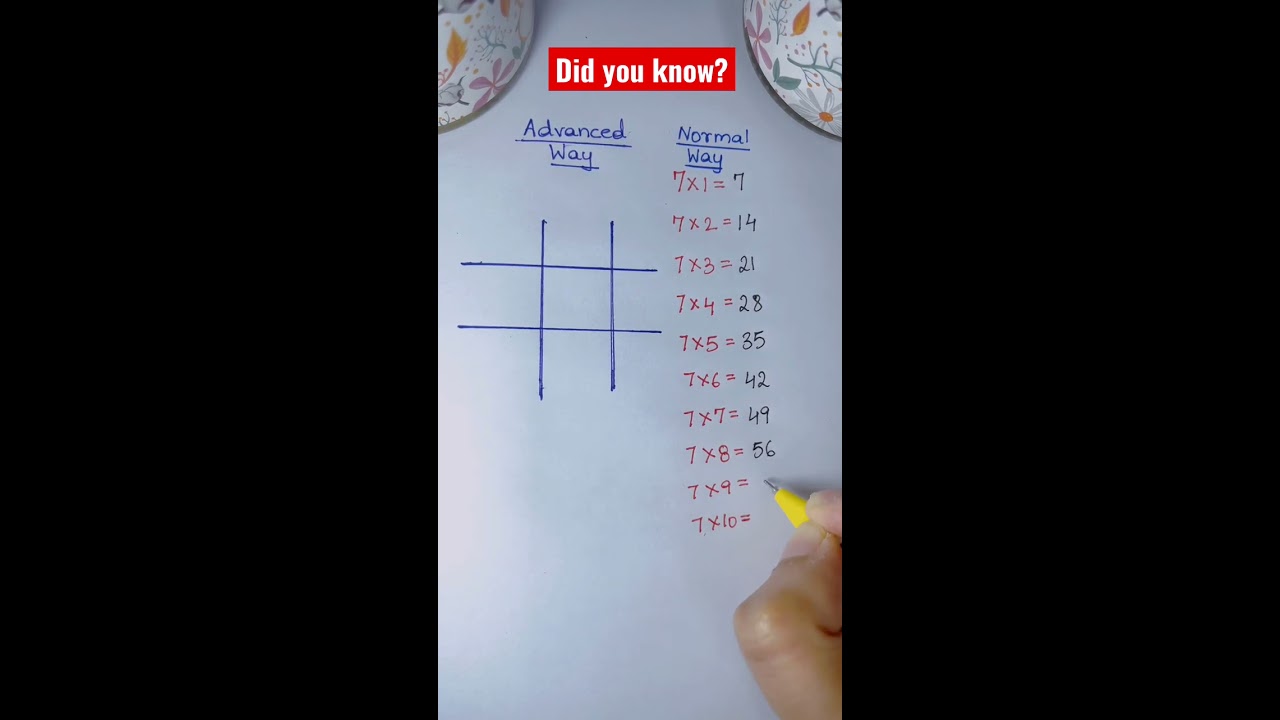 Did you know?
Advanced
Way
Normal
Way
7×1= 7
7×2=14
7×3=21
7×4=28
7×5=35
7×6=42
7×7=49
7×8=56
7×9=
7×10=